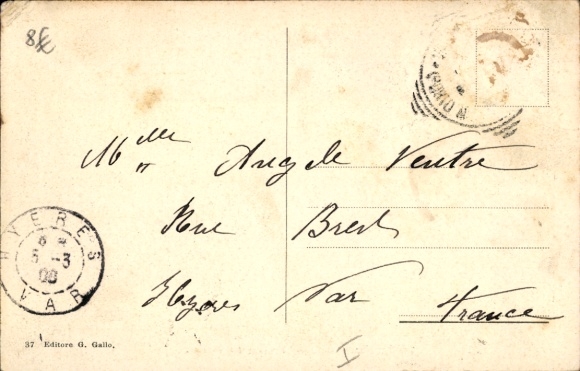 8£
Mlle Angele Ventre
Rue Brest
Hyères Var
France
HYERES
5-3
08
VAR
37 Editore G. Gallo.
I